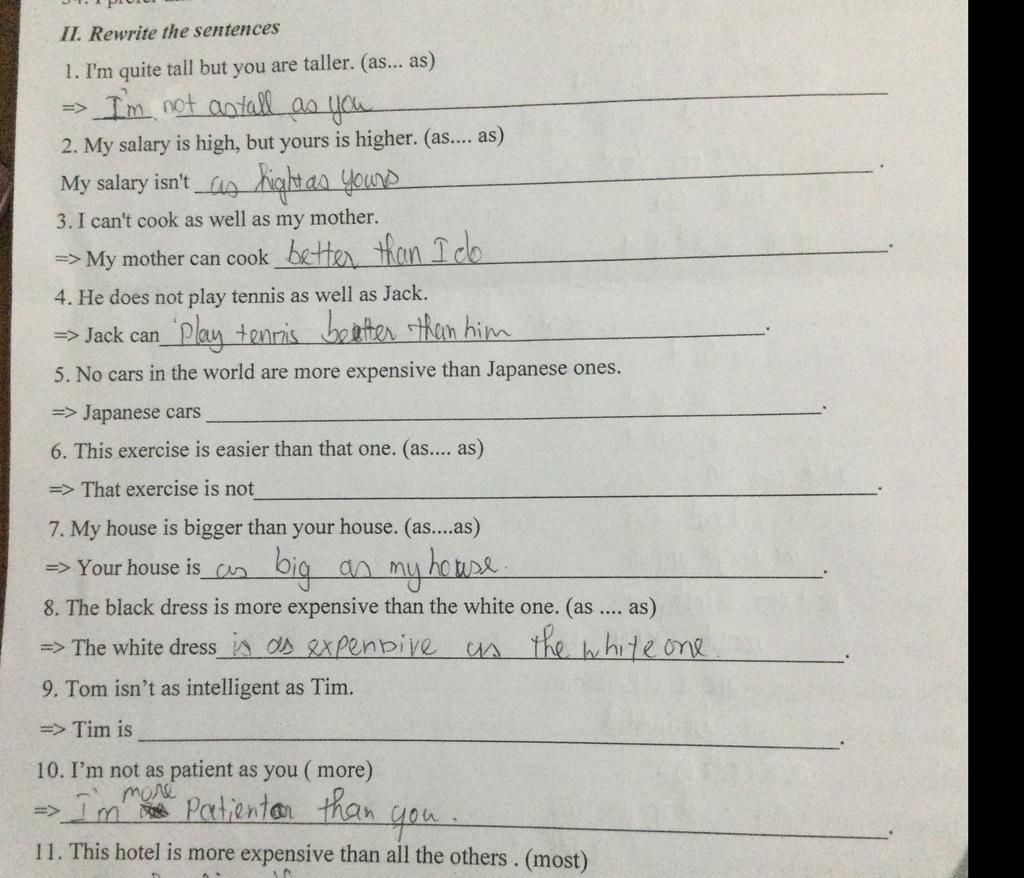 II. Rewrite the sentences
1. I'm quite tall but you are taller. (as... as)
=> I'm not as tall as you
2. My salary is high, but yours is higher. (as.... as)
My salary isn't as hight as yours.
3. I can't cook as well as my mother.
=> My mother can cook better than I do.
4. He does not play tennis as well as Jack.
=> Jack can play tennis better than him.
5. No cars in the world are more expensive than Japanese ones.
=> Japanese cars .
6. This exercise is easier than that one. (as.... as)
=> That exercise is not .
7. My house is bigger than your house. (as....as)
=> Your house is as big as my house. .
8. The black dress is more expensive than the white one. (as .... as)
=> The white dress is as expensive as the white one. .
9. Tom isn't as intelligent as Tim.
=> Tim is .
10. I'm not as patient as you ( more)
=> I'm more Patient than you. .
11. This hotel is more expensive than all the others . (most)